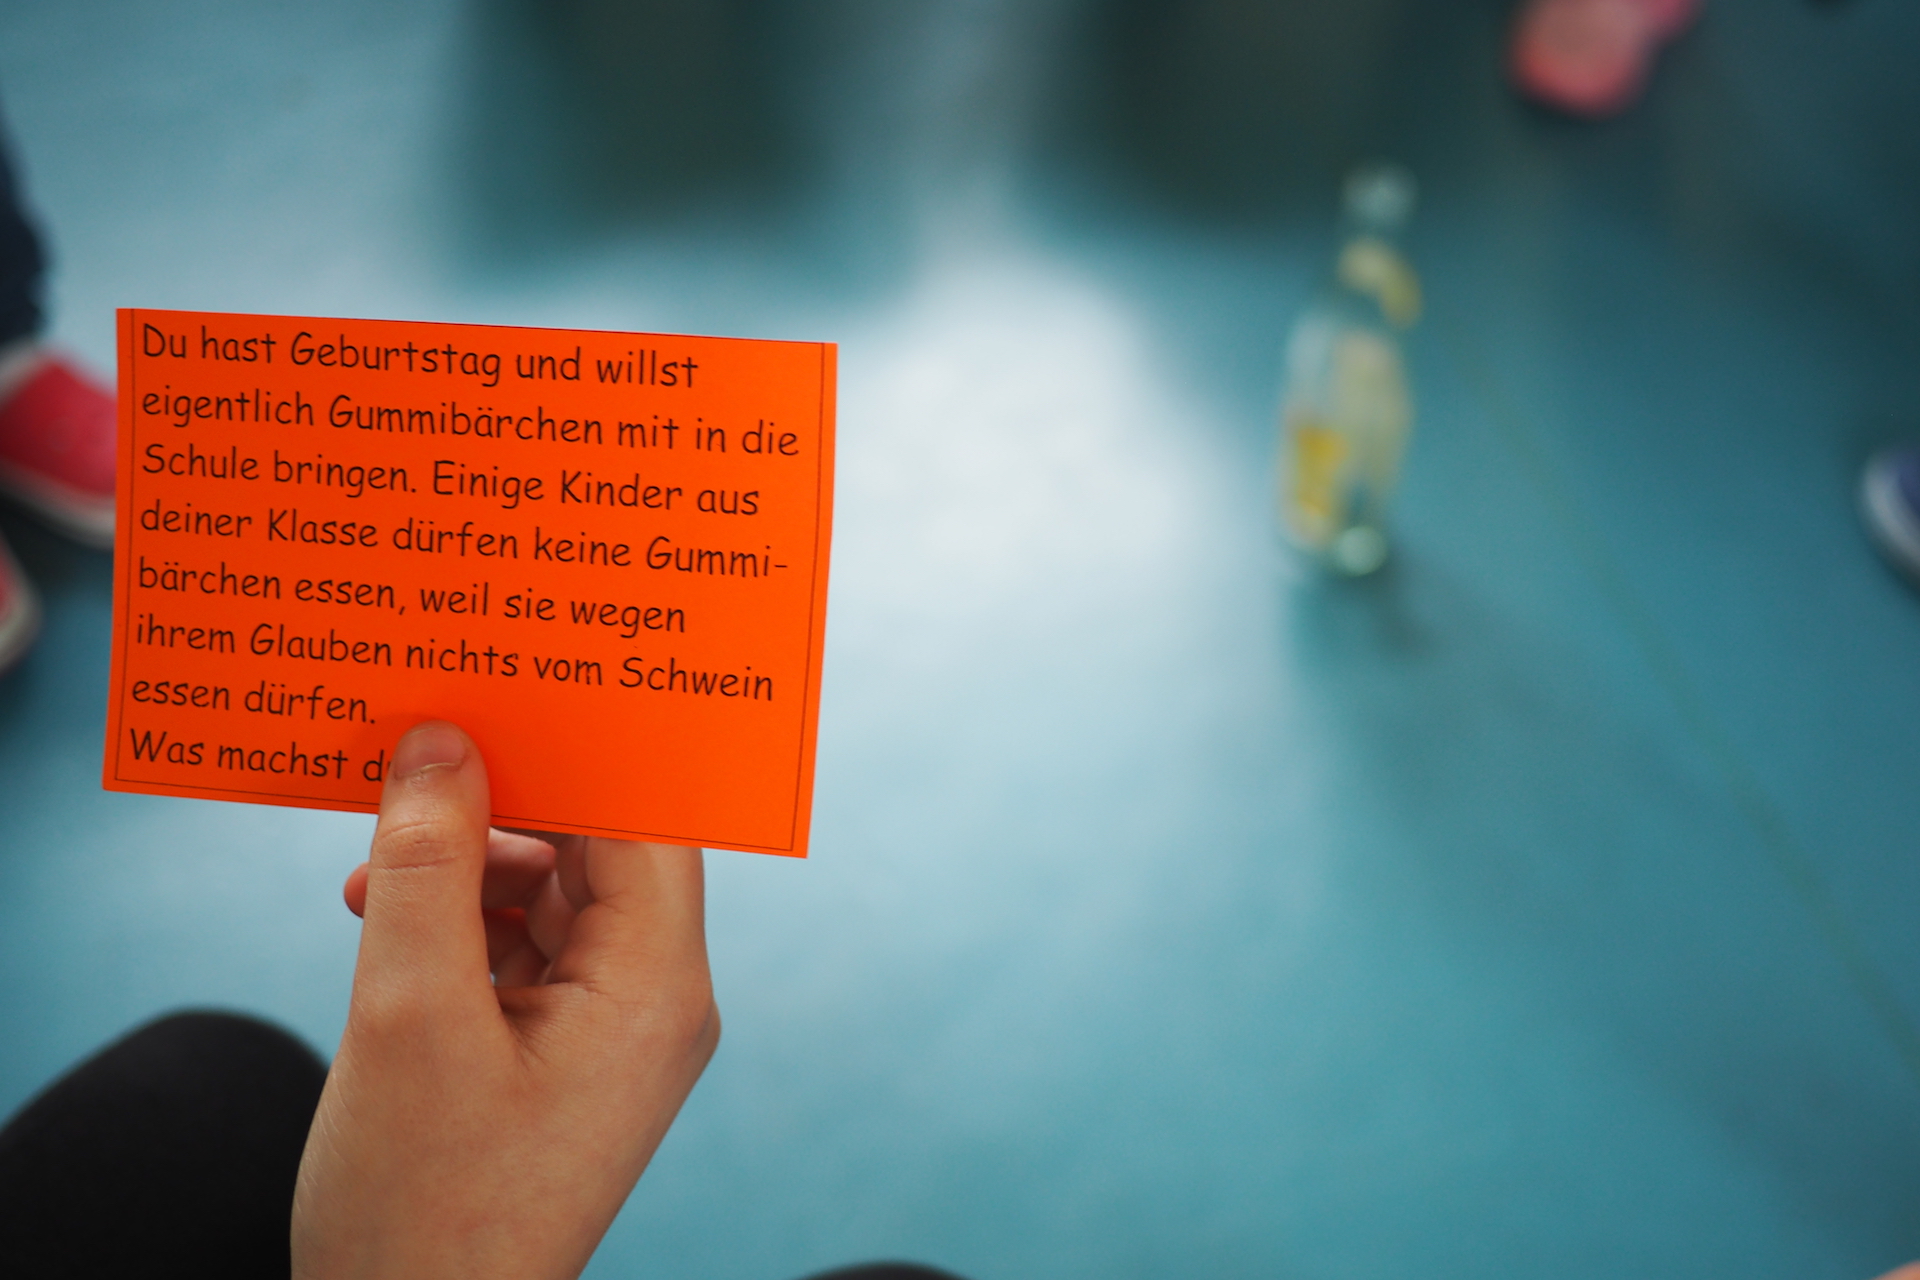 Du hast Geburtstag und willst
eigentlich Gummibärchen mit in die
Schule bringen. Einige Kinder aus
deiner Klasse dürfen keine Gummi-
bärchen essen, weil sie wegen
ihrem Glauben nichts vom Schwein
essen dürfen.
Was machst